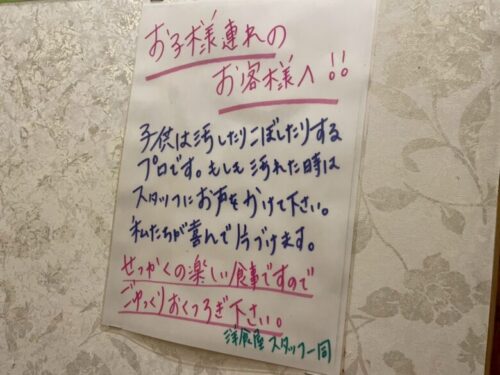 お子様連れの
お客様へ!!
子供は汚したりこぼしたりする
プロです。もしも汚れた時は
スタッフにお声をかけて下さい。
私たちが喜んで片づけます。
せっかくの楽しい食事ですので
ごゆっくりおくつろぎ下さい。
スタッフ一同